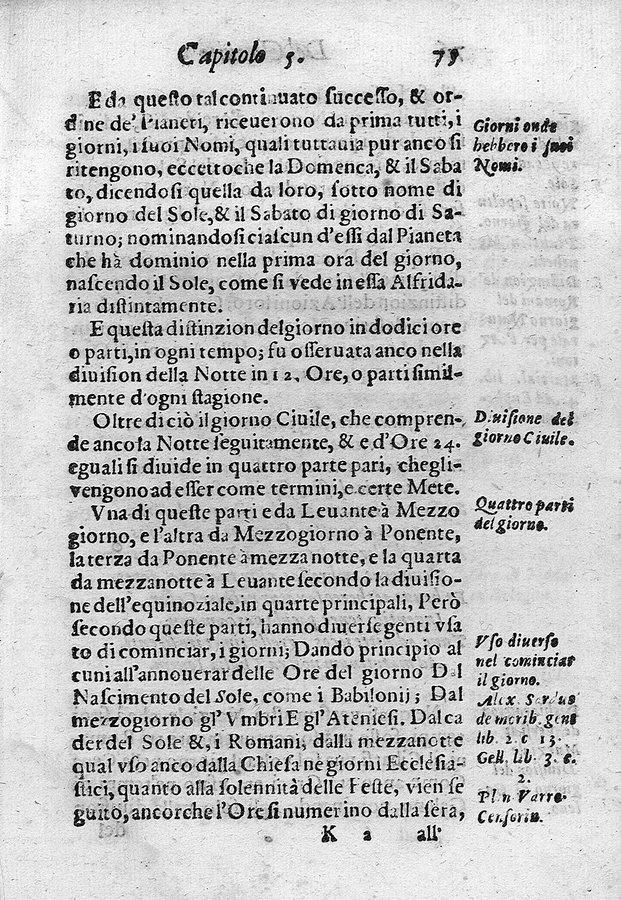 Capitolo 5. 75
E da questo tal continuato successo, & or-
dine de' Pianeti, riceuerono da prima tutti, i
giorni, i suoi Nomi, quali tuttauia pur anco si
ritengono, eccettoche la Domenca, & il Saba
to, dicendosi quella da loro, sotto nome di
giorno del Sole, & il Sabato di giorno di Sa-
turno; nominandosi ciascun d'essi dal Pianeta
che hà dominio nella prima ora del giorno,
nascendo il Sole, come si vede in essa Alfrida-
ria distintamente.
E questa distinzion del giorno in dodici ore
o parti, in ogni tempo; fu osseruata anco nella
diuision della Notte in 12. Ore, o parti simil-
mente d'ogni stagione.
Oltre di ciò il giorno Ciuile, che compren-
de anco la Notte seguitamente, & e d'Ore 24.
eguali si diuide in quattro parte pari, chegli-
vengono ad esser come termini, e certe Mete.
Vna di queste parti e da Leuante à Mezzo
giorno, e l'altra da Mezzogiorno à Ponente,
la terza da Ponente à mezza notte, e la quarta
da mezzanotte à Leuante secondo la diuisio-
ne dell'equinoziale, in quarte principali, Però
secondo queste parti, hanno diuerse genti vsa
to di cominciar, i giorni; Dando principio al
cuni all'annouerar delle Ore del giorno Dal
Nascimento del Sole, come i Babilonij; Dal
mezzogiorno gl' Vmbri E gl' Ateniesi. Dal ca
der del Sole &, i Romani; dalla mezzanotte
qual vso anco dalla Chiesa ne giorni Ecclesia-
stici, quanto alla solennità delle Feste, vien se
guito, ancorche l'Ore si numerino dalla sera,
K 2 all'
Giorni onde
hebbero i suoi
Nomi.
Diuisione del
giorno Ciuile.
Quattro parti
del giorno.
Vso diuerso
nel cominciar
il giorno.
Alex. Sardus
de morib. gent
lib. 2. c 13.
Gell. lib. 3. c.
2.
Plin Varro.
Censorin.